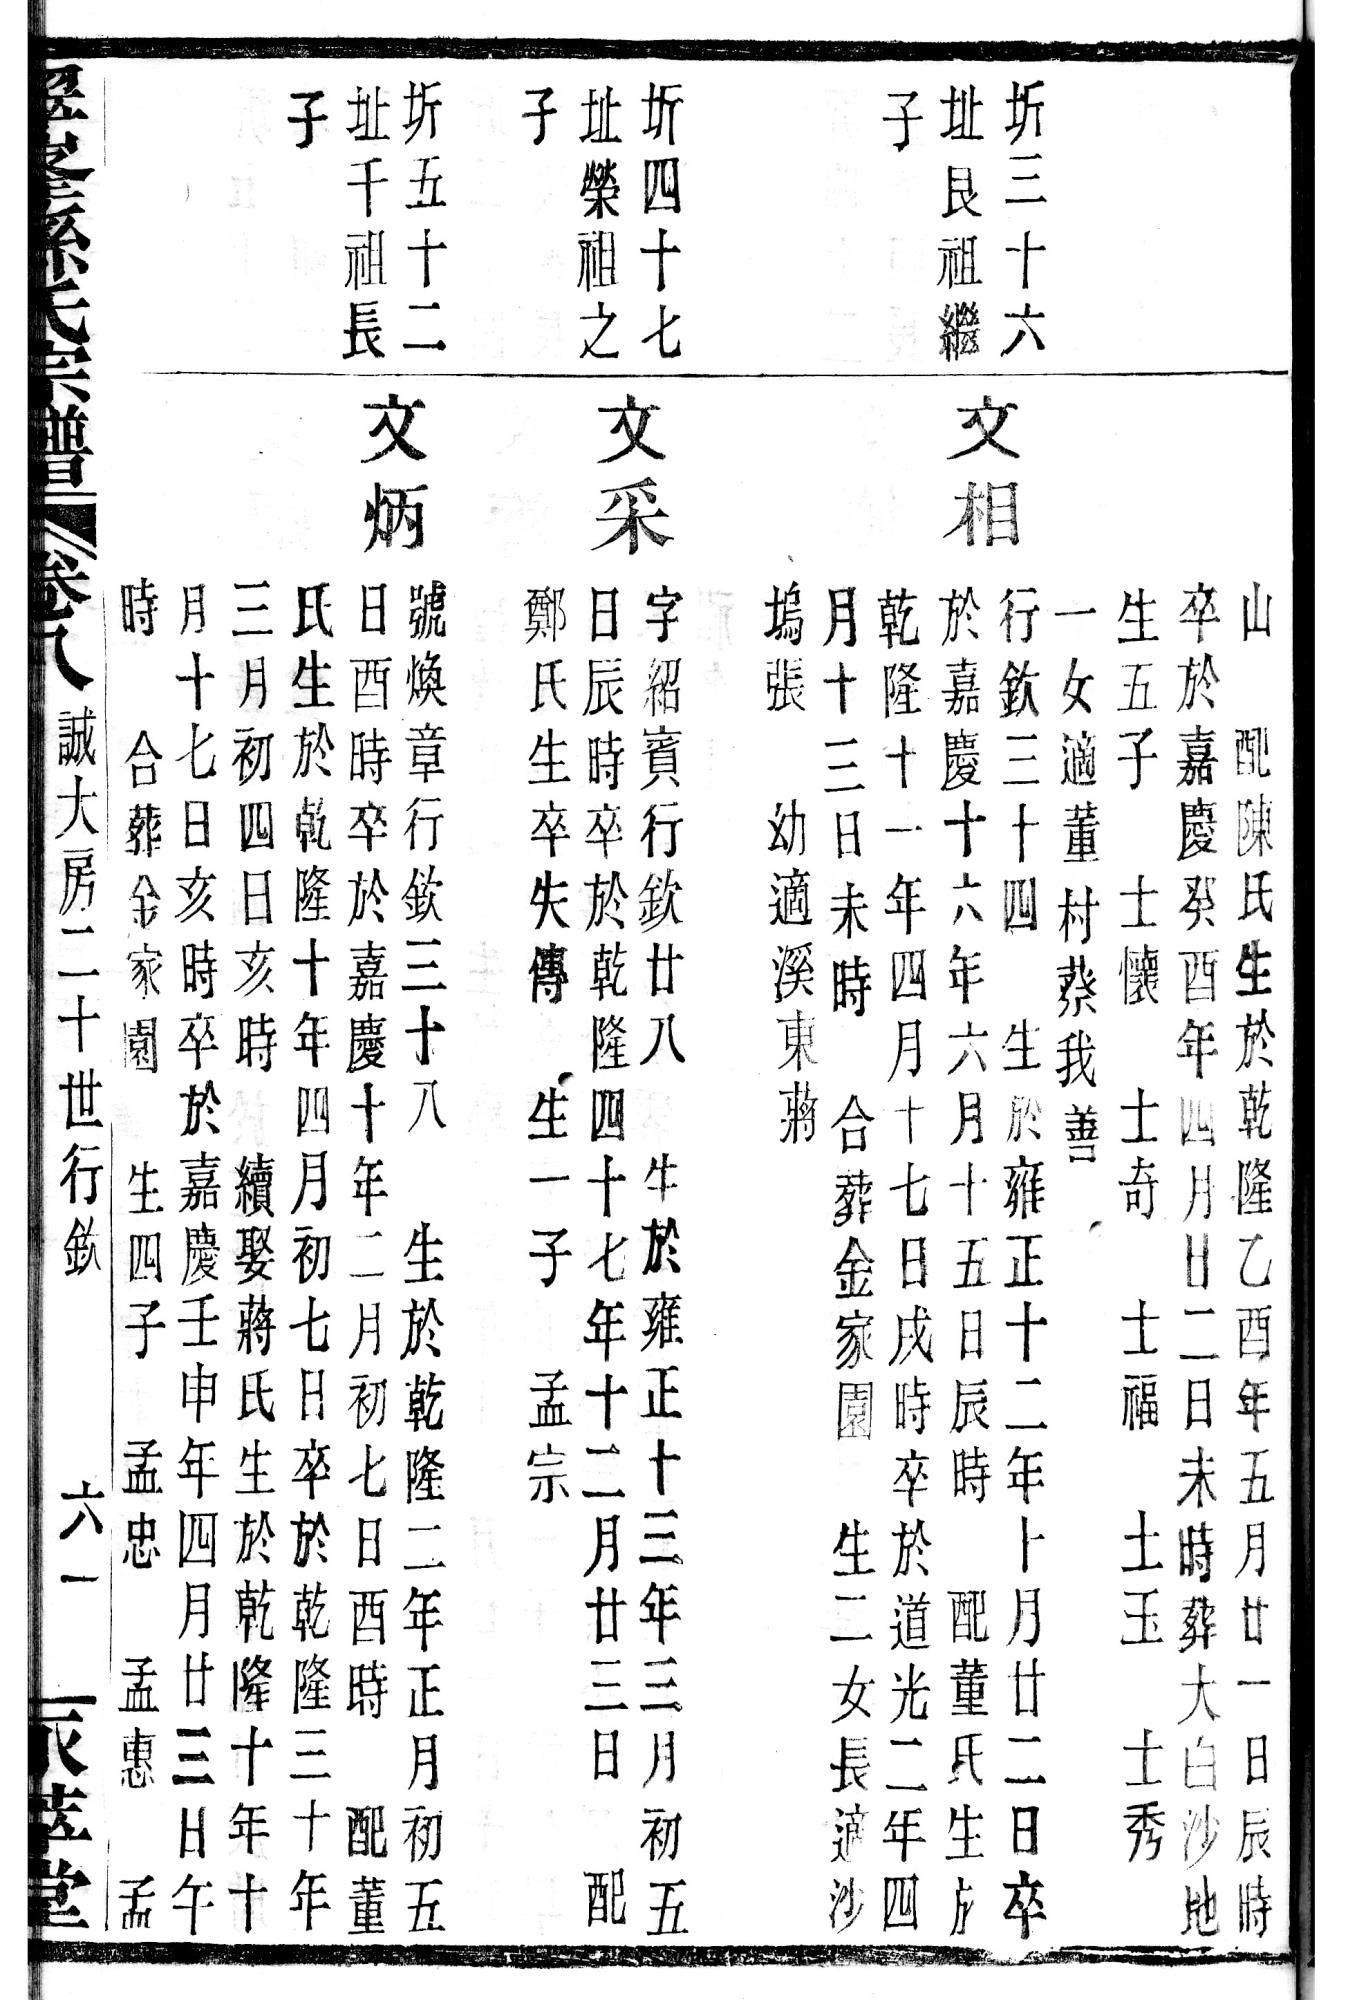 山　配陳氏生於乾隆乙酉年五月廿一日辰時
卒於嘉慶癸酉年四月廿二日未時葬大白沙地
生五子　士懷　士奇　士福　士玉　士秀
一女適董村蔡我善
圻三十六
址艮祖繼
子
文相
行欽三十四　生於雍正十二年十月廿二日卒
於嘉慶十六年六月十五日辰時　配董氏生於
乾隆十一年四月十七日戌時卒於道光二年四
月十三日未時　合葬金家園　生二女長適沙
塢張　幼適溪東蔣
圻四十七
址榮祖之
子
文采
字紹賓行欽廿八　生於雍正十三年三月初五
日辰時卒於乾隆四十七年十二月廿三日　配
鄭氏生卒失傳　生一子　孟宗
圻五十二
址千祖長
子
文炳
號煥章行欽三十八　生於乾隆二年正月初五
日酉時卒於嘉慶十年二月初七日酉時　配董
氏生於乾隆十年四月初七日卒於乾隆三十年
三月初四日亥時　續娶蔣氏生於乾隆十年十
月十七日亥時卒於嘉慶壬申年四月廿三日午
時　合葬金家園　生四子　孟忠　孟惠　孟
孫氏宗譜　卷八　誠大房二十世行欽　六一　堂